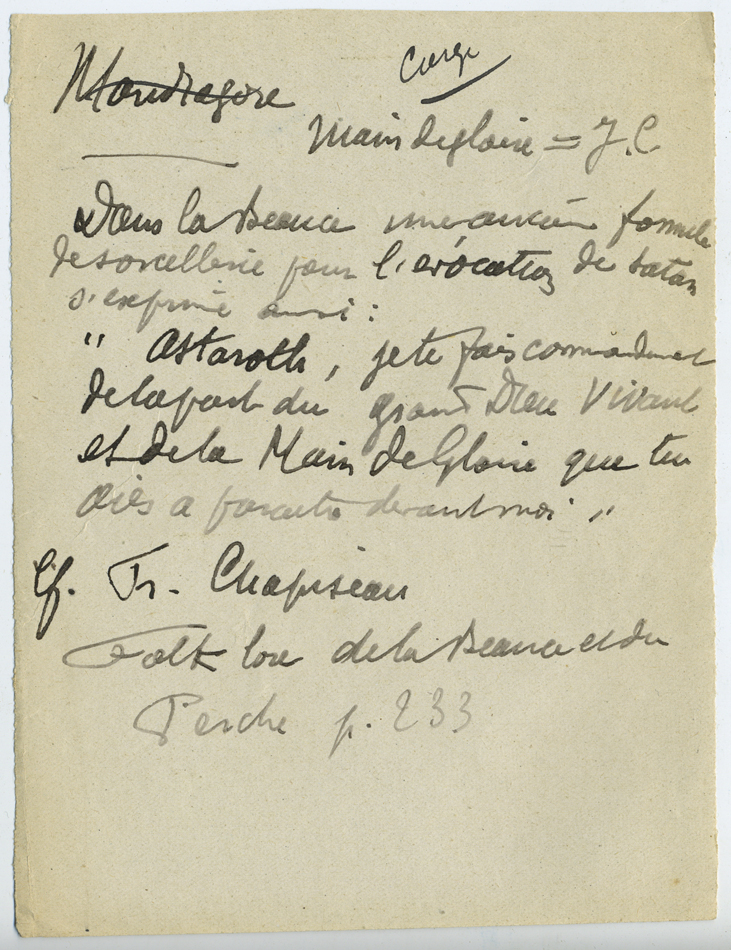 Mandragore
Main de gloire = J. C.
Dans la Beauce une ancienne formule
de sorcellerie pour l'évocation de Satan
s'exprime ainsi :
" Astaroth, je te fais commandement
de la part du grand Dieu Vivant
et de la Main de Gloire que tu
aies a paraitre devant moi "
Cf. Fr. Chapiseau
Folk lore de la Beauce et du
Perche p. 233